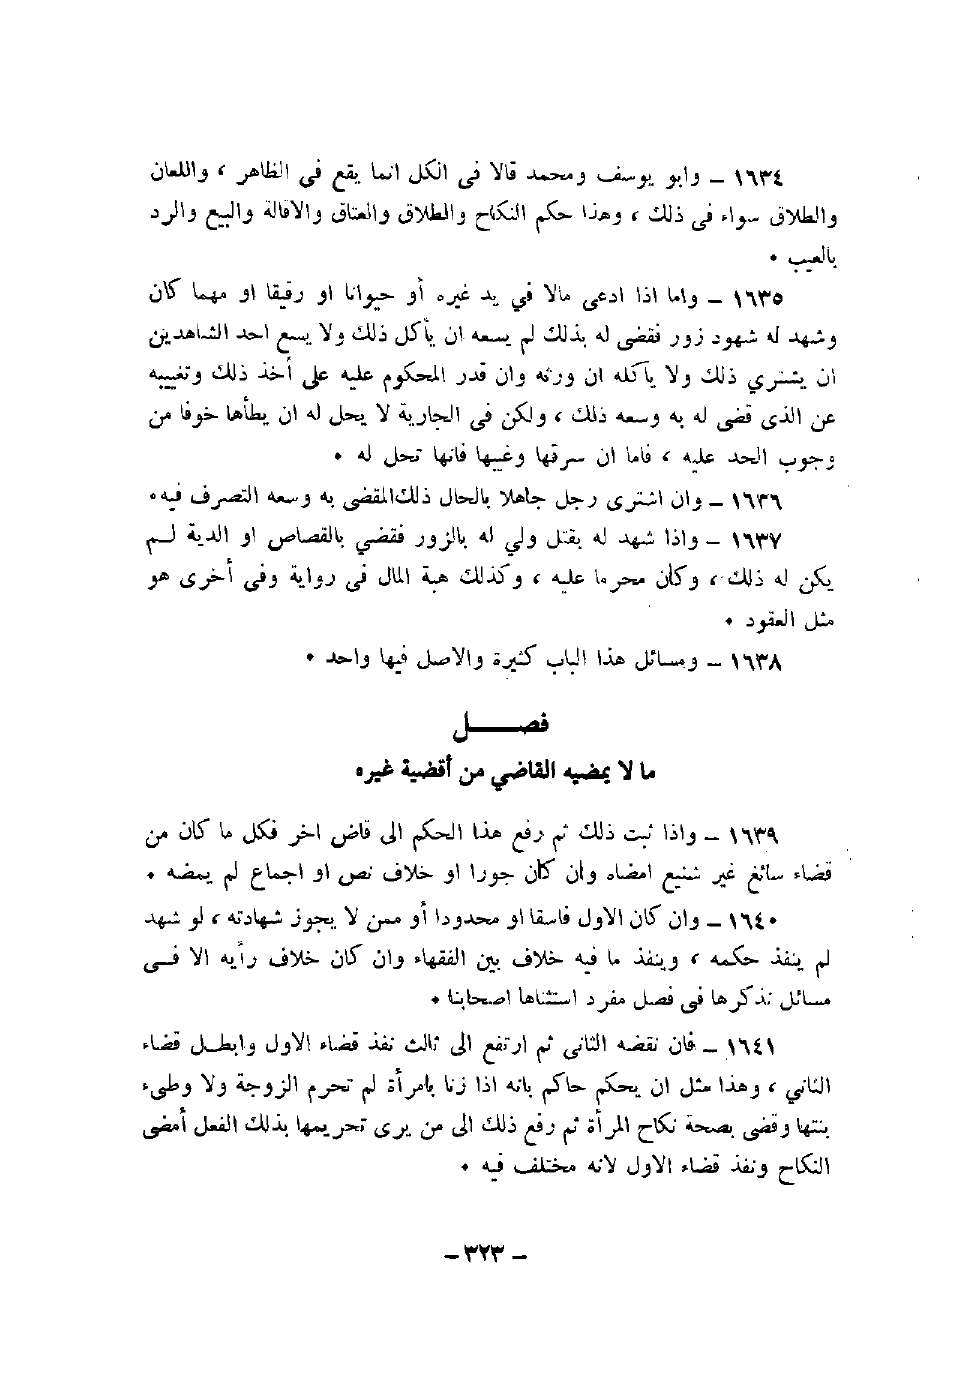 ١٦٣٤ ــ وابو يوسف ومحمد قالا فى الكل انما يقع فى الظاهر ، واللعان
والطلاق سواء فى ذلك ، وهذا حكم النكاح والطلاق والعتاق والاقالة والبيع والرد
بالعيب •
١٦٣٥ ــ واما اذا ادعى مالا في يد غيره أو حيوانا او رقيقا او مهما كان
وشهد له شهود زور فقضى له بذلك لم يسعه ان يأكل ذلك ولا يسع احد الشاهدين
ان يشتري ذلك ولا يأكله ان ورثه وان قدر المحكوم عليه على أخذ ذلك وتغييبه
عن الذى قضى له به وسعه ذلك ، ولكن فى الجارية لا يحل له ان يطأها خوفا من
وجوب الحد عليه ، فاما ان سرقها وغيبها فانها تحل له •
١٦٣٦ ــ وان اشترى رجل جاهلا بالحال ذلك المقضى به وسعه التصرف فيه•
١٦٣٧ ــ واذا شهد له بقتل ولي له بالزور فقضي بالقصاص او الدية لــم
يكن له ذلك ، وكان محرما عليه ، وكذلك هبة المال فى رواية وفى أخرى هو
مثل العقود •
١٦٣٨ ــ ومسائل هذا الباب كثيرة والاصل فيها واحد •
فصـــــل
ما لا يمضيه القاضي من أقضية غيره
١٦٣٩ ــ واذا ثبت ذلك ثم رفع هذا الحكم الى قاض اخر فكل ما كان من
قضاء سائغ غير شنيع امضاه وان كان جورا او خلاف نص او اجماع لم يمضه •
١٦٤٠ ــ وان كان الاول فاسقا او محدودا أو ممن لا يجوز شهادته ، لو شهد
لم ينفذ حكمه ، وينفذ ما فيه خلاف بين الفقهاء وان كان خلاف رأيه الا فــى
مسائل نذكرها فى فصل مفرد استثناها اصحابنا •
١٦٤١ ــ فان نقضه الثانى ثم ارتفع الى ثالث نفذ قضاء الاول وابطــل قضاء
الثاني ، وهذا مثل ان يحكم حاكم بانه اذا زنا بامرأة لم تحرم الزوجة ولا وطىء
بنتها وقضى بصحة نكاح المرأة ثم رفع ذلك الى من يرى تحريمها بذلك الفعل أمضى
النكاح ونفذ قضاء الاول لانه مختلف فيه •
ــ ٣٢٣ ــ